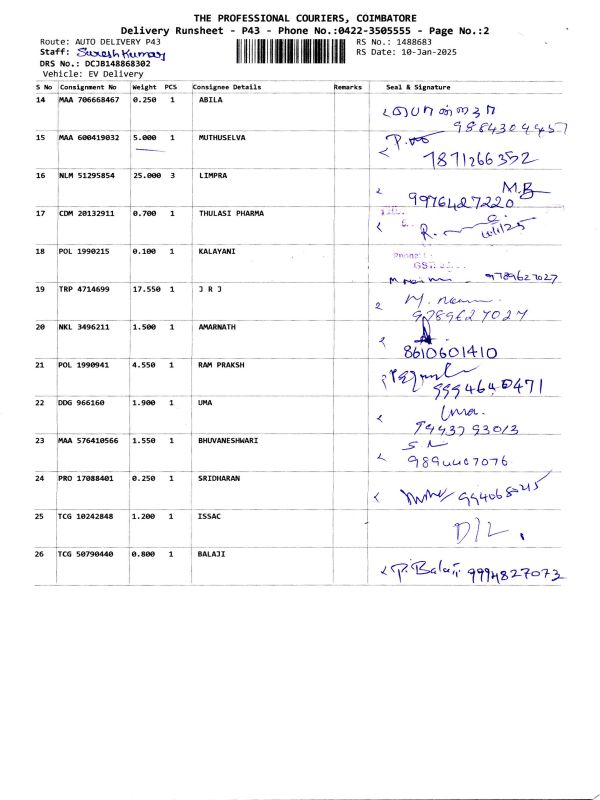 THE PROFESSIONAL COURIERS, COIMBATORE
Delivery Runsheet - P43 - Phone No.:0422-3505555 - Page No.:2
Route: AUTO DELIVERY P43 RS No.: 1488683
Staff: Suresh Kumar RS Date: 10-Jan-2025
DRS No.: DCJB148868302
Vehicle: EV Delivery
S No Consignment No Weight PCS Consignee Details Remarks Seal & Signature
14 MAA 706668467 0.250 1 ABILA
9884304457
15 MAA 600419032 5.000 1 MUTHUSELVA
7871266352
16 NLM 51295854 25.000 3 LIMPRA M.B
9976427220
17 CDM 20132911 0.700 1 THULASI PHARMA
R.
18 POL 1990215 0.100 1 KALAYANI
9789627027
19 TRP 4714699 17.550 1 J R J
9789627027
20 NKL 3496211 1.500 1 AMARNATH
8610601410
21 POL 1990941 4.550 1 RAM PRAKSH
9994640471
22 DDG 966160 1.900 1 UMA Uma.
23 MAA 576410566 1.550 1 BHUVANESHWARI S N
24 PRO 17088401 0.250 1 SRIDHARAN
25 TCG 10242848 1.200 1 ISSAC D/L.
26 TCG 50790440 0.800 1 BALAJI P. Balaji 9994827073